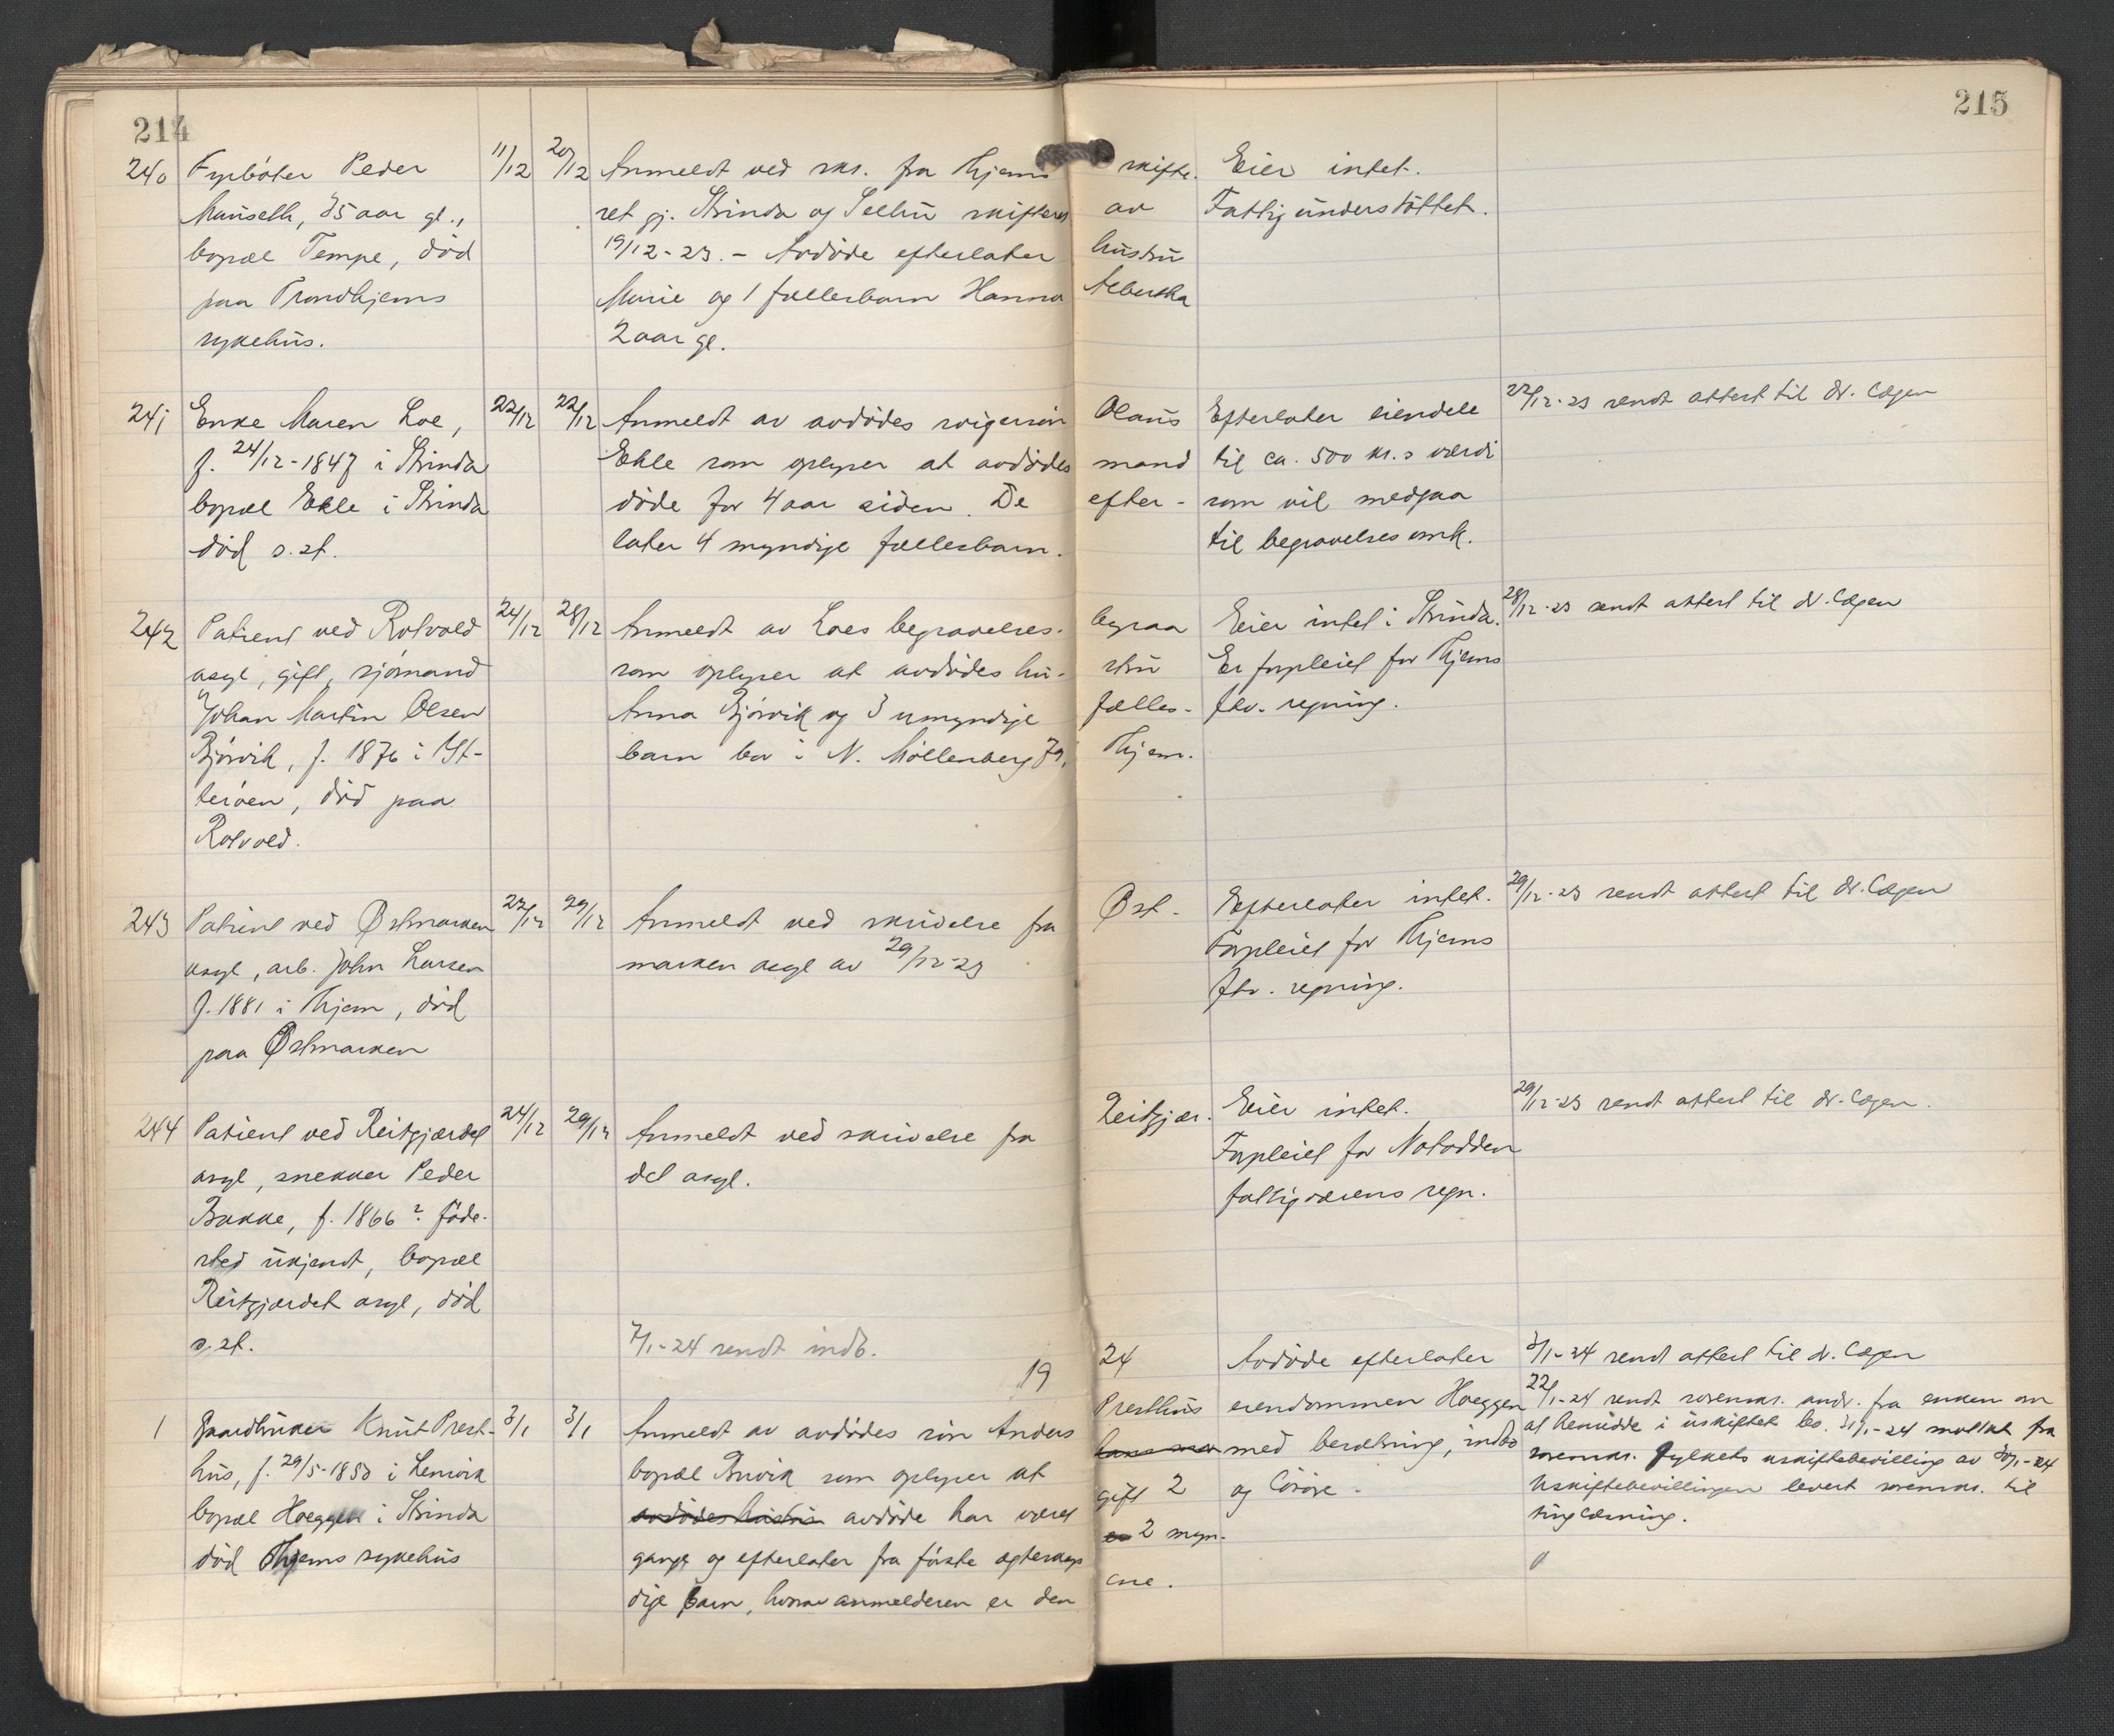 214
215
240 Fyrbøter Peder 11/12 20/12 Anmeldt ved skr. fra Thjems skifte- Eier intet.
Mauseth, 35 aar gl., ret gj. Strinda og Selbu skifteret av Fattigunderstøttet.
bopæl Tempe, død 19/12-23. - Avdøde efterlater hustru
paa Trondhjems Marie og 1 fællesbarn Hanna Albertha
sykehus. 2 aar gl.
241 Enke Maren Loe, 22/12 22/12 Anmeldt av avdødes svigersøn Olaus Efterlater eiendele 22/12-23 sendt attest til dr. Cogen
f. 24/12-1847 i Strinda Ekle som oplyser at avdødes mand til ca. 500 kr.s værdi
bopæl Ekle i Strinda døde for 4 aar siden. De efter- som vil medgaa
død s.st. later 4 myndige fællesbarn. til begravelsesomk.
242 Patient ved Rotvold 24/12 28/12 Anmeldt av Loes begravelses- byraa Eier intet i Strinda. 28/12-23 sendt attest til dr. Cogen
asyl, gift, sjømand som oplyser at avdødes hu- stru Er forpleiet for Thjems
Johan Martin Olsen Anna Bjørvik og 3 umyndige fælles- ftv. regning.
Bjørvik, f. 1876 i Yt- barn bor i N. Møllenberg 79, Thjem.
terøen, død paa
Rotvold.
243 Patient ved Østmarken 27/12 29/12 Anmeldt ved skrivelse fra Øst- Efterlater intet. 29/12-23 sendt attest til dr. Cogen
asyl, arb. John Larsen marken asyl av 29/12-23 Forpleiet for Thjems
f. 1881 i Thjem, død ftv. regning.
paa Østmarken
244 Patient ved Reitgjerdet 24/12 29/12 Anmeldt ved skrivelse fra Reitgjær- Eier intet. 29/12-23 sendt attest til dr. Cogen.
asyl, snekker Peder det asyl. Forpleiet for Notodden
Bakke, f. 1866? føde- fattigvæsens regn.
sted ukjendt, bopæl
Reitgjærdet asyl, død
s.st. 7/1-24 sendt indb.
19 24
1 Gaardbruker Knut Prest- 3/1 3/1 Anmeldt av avdødes søn Anders Presthus Avdøde efterlater 3/1-24 sendt attest til dr. Cogen
hus, f. 29/5-1850 i Lensvik bopæl Buvik som oplyser at eiendommen Hoeggen 22/1-24 sendt sorenskr. andr. fra enken om
bopæl Hoeggen i Strinda avdødes hustru avdøde har været gift 2 med besætning, indbo at hensidde i uskiftet bo. 31/1-24 mottat fra
død Thjems sykehus ganger og efterlater fra første egteskap 2 myn- og løsøre. sorenskr. fylkets uskiftebevilling av 30/1-24
dige barn, hvorav anmelderen er den ene. Uskiftebevillingen levert sorenskr. til
tinglæsning.